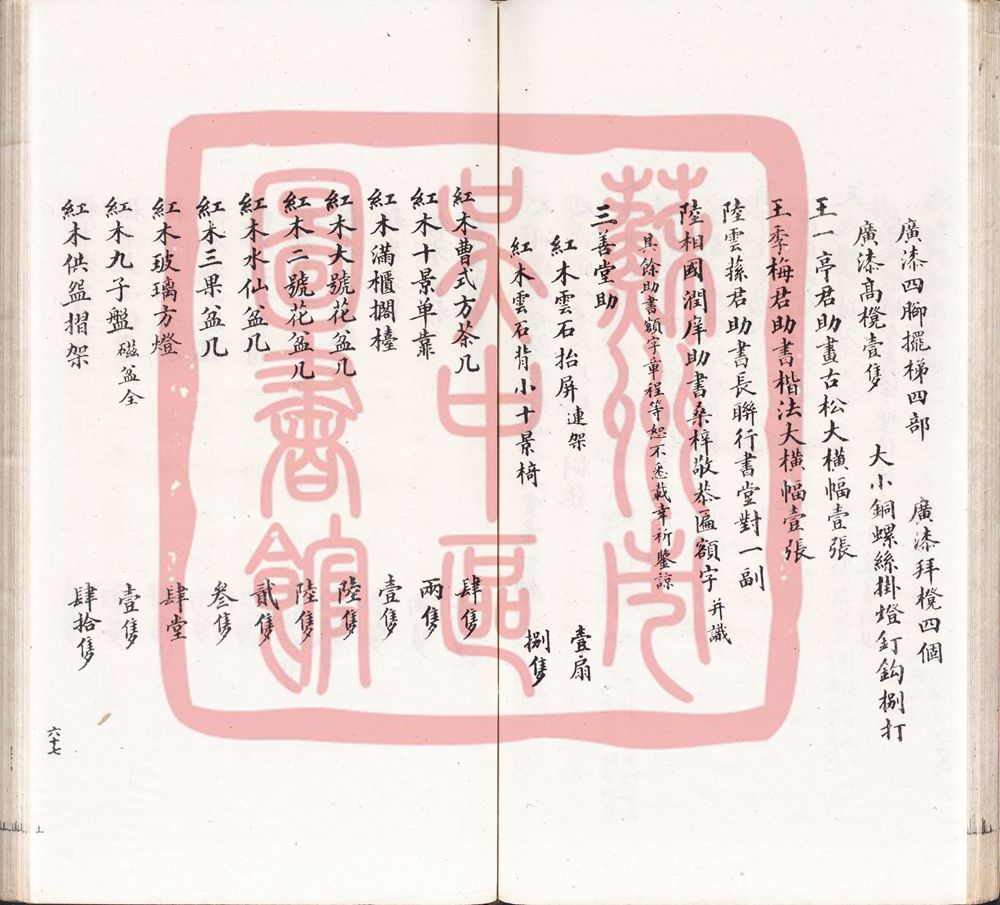 廣漆四脚擺梯四部　廣漆拜櫈四個
廣漆高櫈壹隻　大小銅螺絲掛燈釘鈎捌打
王一亭君助畫古松大橫幅壹張
王季梅君助書楷法大橫幅壹張
陸雲蓀君助書長聯行書堂對一副
陸相國潤庠助書桑梓敬恭匾額字 并識
其餘助書額字章程等恕不悉載幸祈鑒諒
三善堂助
紅木雲石抬屏 連架　壹扇
紅木雲石背小十景椅　捌隻
紅木曹式方茶几　肆隻
紅木十景单靠　兩隻
紅木滿櫃擱檯　壹隻
紅木大號花盆几　陸隻
紅木二號花盆几　陸隻
紅木水仙盆几　貳隻
紅木三果盆几　叁隻
紅木玻璃方燈　肆堂
紅木九子盤 磁盆全　壹隻
紅木供盆摺架　肆拾隻
六十七
蘇州市
吳中區
圖書館